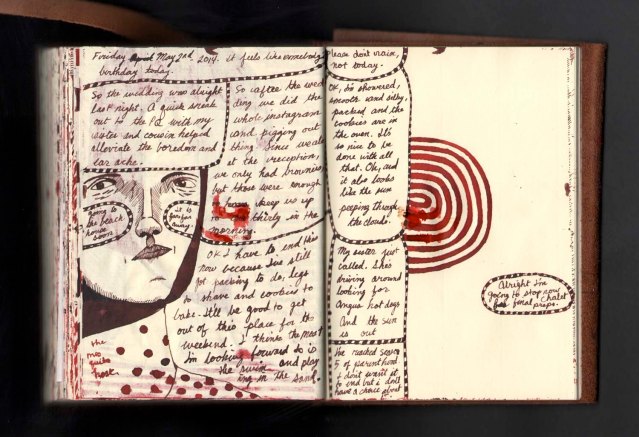 Friday April May 2nd 2014. It feels like somebody
birthday today.
So the wedding was alright
last night. A quick sneak
out to the Pa with my
sister and cousin helped
alleviate the boredom and
ear ache.
So after the wed
ding we did the
whole instagram
and pigging out
thing. Since weale
at the reception,
we only had brownies
but those were enough
keep us up
in thirty in the
morning.
going to the beach
house soon
it is
far far
away.
OK I have to end this
now because Ive still
got packing to do, legs
to shave and cookies to
bake. Itll be good to get
out of this place for the
weekend. I thinks the most
Im looking forward to is
the swim and play
ing in the sand.
the
mos
quito
host.
Please dont rain,
not today.
OK, Im showered,
smooth and silky,
packed and the
cookies are in
the oven. It's
so nice to be
done with all
that. Oh, and
it also looks
like the sun
peeping through
the clouds.
My sister just
called. She's
driving around
looking for
Angus hot dogs
And the sun
is out
He reached season
5 of parenthood
I dont want it
to end but i dont
have a choice about
Alright Im
going to stop now
for final chalet
preps.